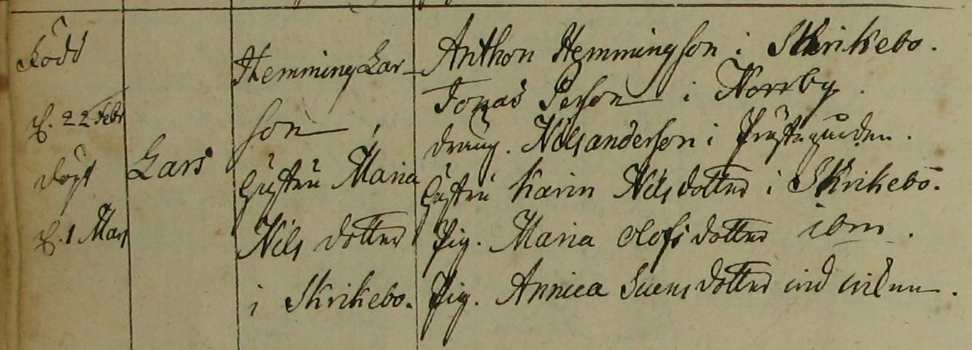 Född
d. 22 Febr
döpt
d. 1 Mars
Lars
Hemming Lar-
son,
Hustru Maria
Nils dotter
i Skrikebo.
Anthon Hemmingson i Skrikebo.
Jonas Person i Norrby.
Dräng. Nils anderson i Prästegården.
Hustru Karin Nils dotter i Skrikebo.
Pig. Maria Olofs dotter ibm.
Pig. Annica Svens dotter vid